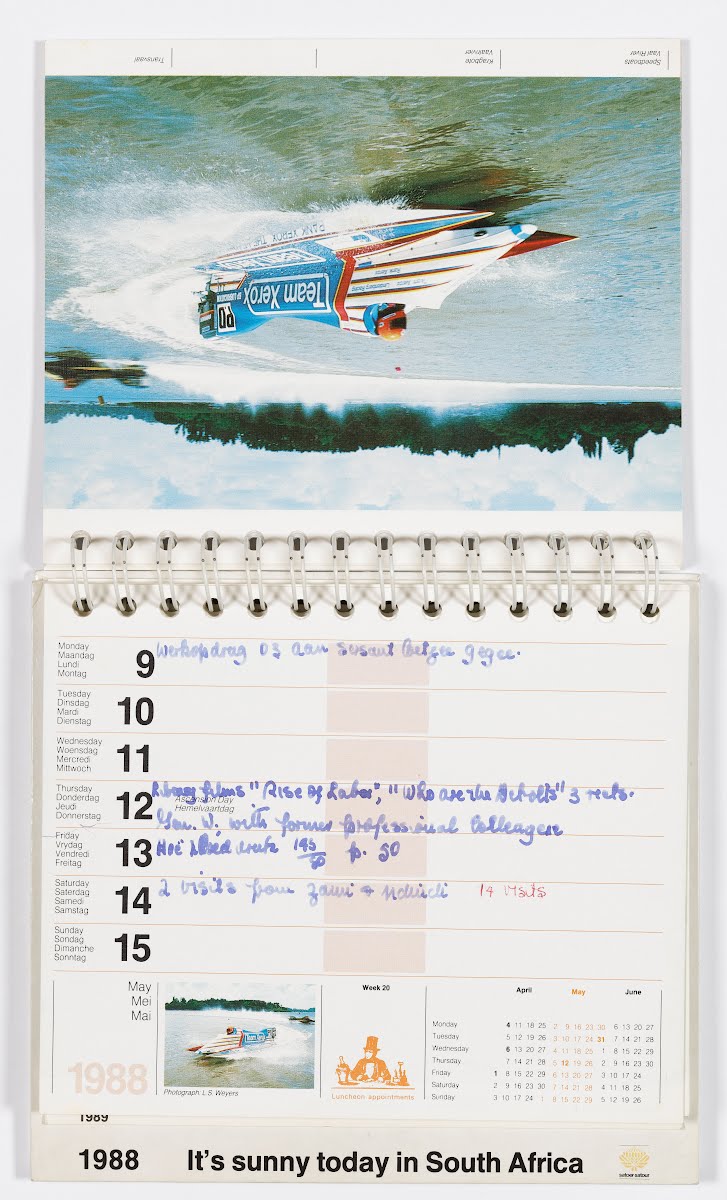 Speedboats
Vaal River
Kragbote
Vaalrivier
Transvaal
RANK XEROX
Team Xerox
Monday
Maandag
Lundi
Montag
9
Werkopdrag 03 aan gegee.
Tuesday
Dinsdag
Mardi
Dienstag
10
Wednesday
Woensdag
Mercredi
Mittwoch
11
Thursday
Donderdag
Jeudi
Donnerstag
12
Ascension Day
Hemelvaartdag
Library films "Rise of Labor", "Who are the 3 reels.
Gen. W. with former professional colleague
Friday
Vrydag
Vendredi
Freitag
13
p. 50
Saturday
Saterdag
Samedi
Samstag
14
2 visits from Zami & Ndindi 14 visits
Sunday
Sondag
Dimanche
Sonntag
15
May
Mei
Mai
1988
Photograph: L.S. Weyers
Week 20
Luncheon appointments
April May June
Monday 4 11 18 25 2 9 16 23 30 6 13 20 27
Tuesday 5 12 19 26 3 10 17 24 31 7 14 21 28
Wednesday 6 13 20 27 4 11 18 25 1 8 15 22 29
Thursday 7 14 21 28 5 12 19 26 2 9 16 23 30
Friday 1 8 15 22 29 6 13 20 27 3 10 17 24
Saturday 2 9 16 23 30 7 14 21 28 4 11 18 25
Sunday 3 10 17 24 1 8 15 22 29 5 12 19 26
1989
1988 It's sunny today in South Africa
satoer·satour